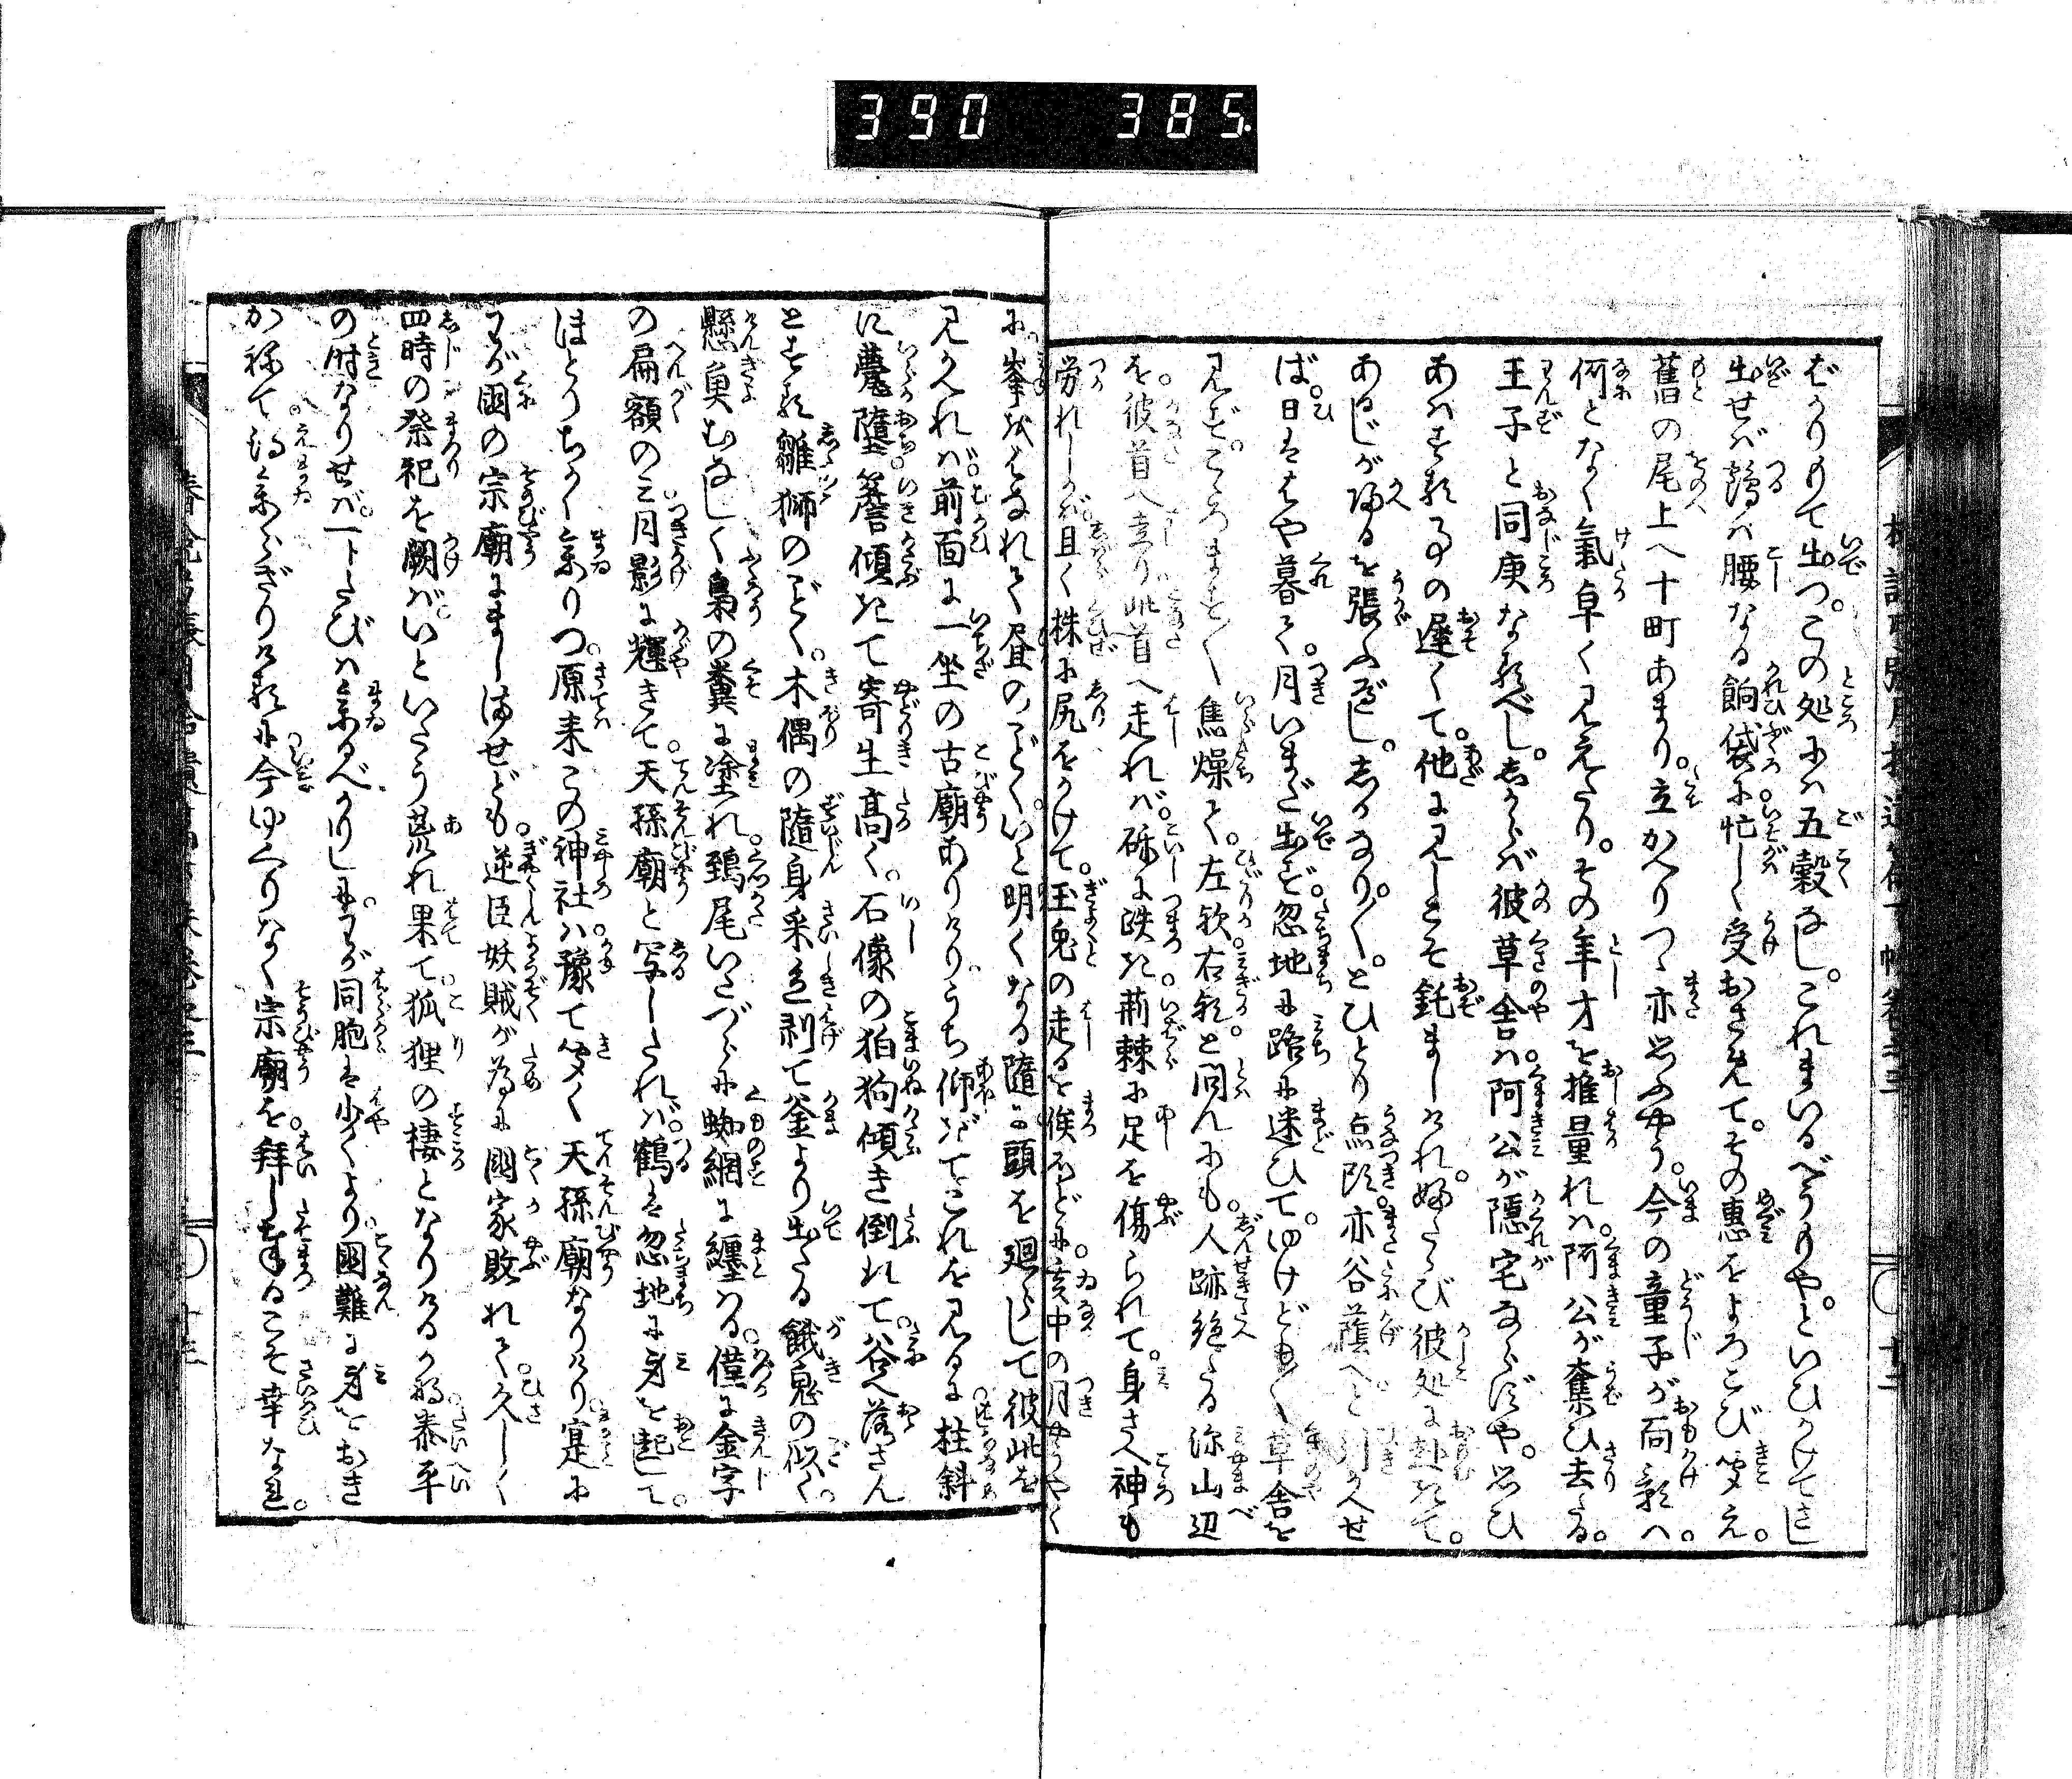 390 385
ばかりもて出つ。この処には五穀なし。これまいるべうもや。といひかけてさし
出せば鶴は腰なる餉袋に忙しく受おさめて。その恵をよろこび聞え。
舊の尾上へ十町あまり。立かへりつゝ亦思ふやう。今の童子が面影へ。
何となく氣高く見えたり。その年才を推量れば。阿公が奪ひ去たる。
王子と同庚なるべし。しからば彼草舎は阿公が隠宅ならずや。思ひ
あはする事の遅くて。他に見しこそ鈍ましけれ。ふたゝび彼処に赴きて。
あるじが帰るを張ふべし。しかなり〳〵。とひとり点頭。亦谷蔭へと引かへせ
ば。日ははや暮て。月いまだ出ず。忽地に路に迷ひて。ゆけども〳〵草舎を
見ず。こゝろます〳〵焦燥て。左歟右歟と問んにも。人跡絶たる深山辺
を。彼首へ走り此首へ走れば。砾に跌き。荊棘に足を傷られて。身さへ神も
労れしかば。且く株に尻をかけて。玉兎の走るを俟ほどに。亥中の月やうやく
に。峯をはなれて昼のごとく。いと明くなる隨に頭を廻らして彼此を
見かへれば。前面に一坐の古廟ありけり。うち仰ぎてこれを見るに。柱斜
に甍墮。簷傾きて寄生高く。石像の狛狗傾き倒れて。谷へ落さん
とする雛獅のごとく。木偶の隨身采色剥て釜より出たる餓鬼の似く。
懸魚むなしく梟の糞に塗れ。鵄尾いたづらに蜘網に纏はる。僅に金字
の扁額の三。月影に輝きて。天孫廟と写したれば。鶴は忽地に身を起して。
ほとりちかく参りつ。原来この神社は。豫て聞く天孫廟なりけり。寔に
わが国の宗廟にましませども。逆臣妖賊が為に國家敗れて。久しく
四時の祭祀を闕ば。いといたう荒れ果て。狐狸の棲となりけるか。泰平
の時なりせば。一トたびは参るべかりしに。わが同胞は少くより。國難に身をおき
かねて。得参らざりけるに。今ゆくりなく宗廟を。拝し奉るこそ幸なれ。